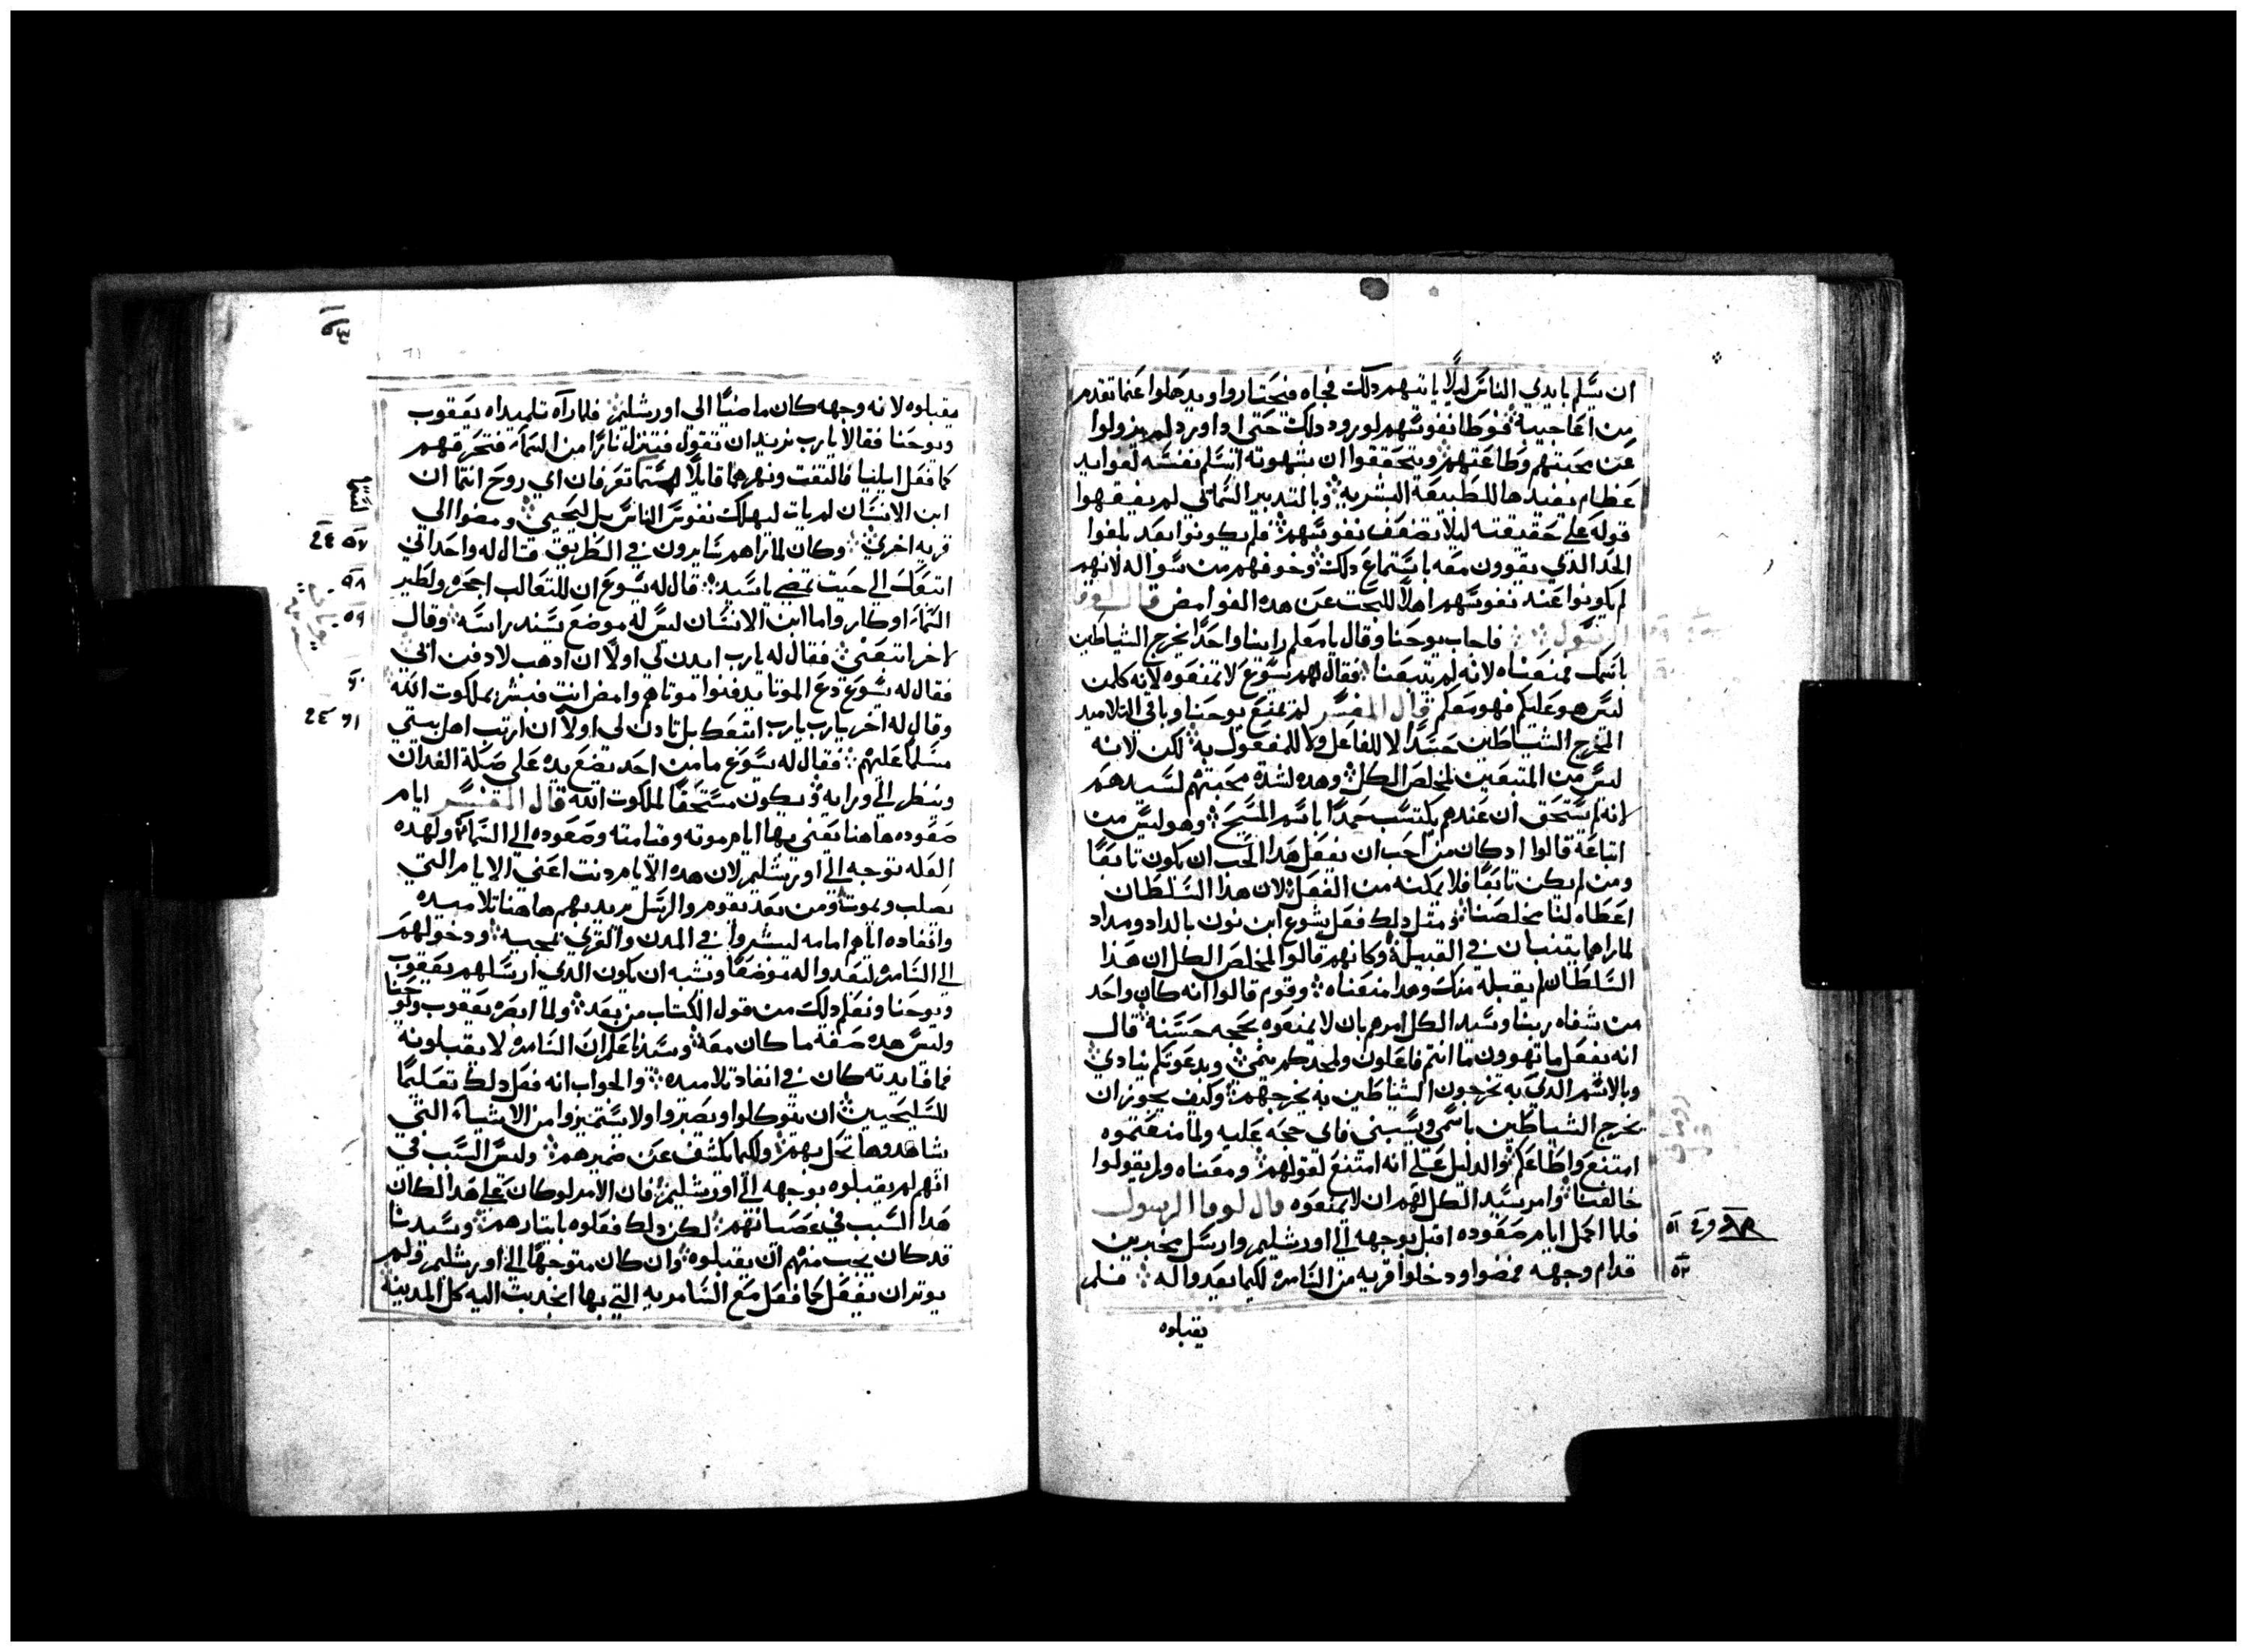 ان يسلم بايدي الناس ليلا ياتيهم دلك فجاه فنحتاروا ويدهلوا عما تقدم
من اعاجيبه فوطا نفوسهم لورود دلك حتى ادا ورد لم يزولوا
عن محبتهم وطاعتهم ويتحققوا ان بشهوته اسلم نفسه لفوايد
عظام يفيدها للطبيعة البشريه وبالتدبير السمائي لم يفقهوا
قوله على حقيقته ليلا تضعف نفوسهم فلم يكونوا بعد بلغوا
الحد الدي يقوون معه باستماع دلك وخوفهم من سواله لانهم
لم يكونوا عند نفوسهم اهلا للبحت عن هده الغوامض قال لوقا
الرسول فاجاب يوحنا وقال يا معلم راينا واحدا يخرج الشياطين
باسمك فمنعناه لانه لم يتبعنا فقال لهم يسوع لا تمنعوه لانه كلمن
ليس هو عليكم فهو معكم قال المفسر لم يمنع يوحنا وباقي التلاميد
المخرج الشياطين حسدا لا للفاعل ولا للمفعول به لكن لانه
ليس من المتبعين لمخلص الكل وهده لشدة محبتهم لسيدهم
لانه لم يستحق ان عندهم يكتسب حمدا باسم المسيح وهو ليس من
اتباعه قالوا ادكان من احب ان يفعل هدا يجب ان يكون تابعا
ومن لم يكن تابعا فلا يمكنه من الفعل لان هذا السلطان
اعطاه لنا مخلصنا ومتل دلك فعل يشوع ابن نون بالداد وميداد
لما راهما يتنبان في القبيلة وكانهم قالوا لمخلص الكل ان هذا
السلطان لم يقبله منك وهدا منعناه وقوم قالوا انه كان واحد
من شفاه ربنا وسيد الكل امرهم بان لا يمنعوه بحجه حسنة قال
انه يفعل ما تهوون ما انتم فاعلون ولمجدكم ينمي وبدعوتكم ينادي
وبالاسم الدي به تخرجون الشياطين به يخرجهم وكيف يجوز ان
يخرج الشياطين باسمي ويسبني فاي حجه عليه ولما منعتموه
امتنع واطاعكم والدليل على انه امتنع لقولهم ومعناه ولم يقولوا
خالفنا وامر سيد الكل لهم ان لا يمنعوه قال لوقا الرسول
فلما اكمل ايام صعوده اقبل بوجهه الى اورشليم وارسل مخبرين
قدام وجهه فمضوا ودخلوا قريه من السامره لكيما يعدوا له فلم
يقبلوه
٥١
٥٢
٥٣
يقبلوه لانه وجهه كان ماضيا الى اورشليم فلما رآه تلميداه يعقوب
ويوحنا فقالا يارب تريد ان نقول فتنزل نارا من السماء فتحرقهم
كما فعل ايليا فالتفت ونهرهما قايلا لستما تعرفان اي روح انتما ان
ابن الانسان لم يات ليهلك نفوس الناس بل ليحيي ومضوا الى
قريه اخري وكان لما راهم سايرون في الطريق قال له واحد اني
اتبعك الى حيت تمضي يا سيد قال له يسوع ان للتعالب اجحره ولطير
السماء اوكار واما ابن الانسان ليس له موضع يسند راسه وقال
لاخر اتبعني فقال له يارب ايدن لي اولا ان ادهب لادفن ابي
فقال له يسوع دع الموتا يدفنوا موتاهم وامض انت فبشر بملكوت الله
وقال له اخر يارب اتبعك بل تادن لي اولا ان ارتب اهل بيتي
مسلما عليهم فقال له يسوع ما من احد يضع يده على سكة الفدان
وينظر الى ورايه ويكون مستحقا لملكوت الله قال المفسر ايام
صعوده هاهنا يعني بها ايام موته وقيامته وصعوده الى السماء ولهده
العله توجه الى اورشليم لان هده الايام دنت اعني الايام التي
يصلب ويموت ومن بعد يقوم والرسل يريد بهم هاهنا تلاميده
وانفاده اياهم امامه ليبشروا في المدن والقري بمجيه ودخولهم
الى السامره ليعدوا له موضعا ويشبه ان يكون الدي ارسلهم يعقوب
ويوحنا ونعلم دلك من قول الكتاب من بعد ولما ابصره يعقوب ويوحنا
وليس هده صفة ما كان معه وسيدنا علم ان السامره لا يقبلونه
فما فايدته كان في انفاد تلاميده والجواب انه فعل دلك تعليما
للسليحيين ان يتوكلوا ويصبروا ولا يشمئزوا من الاشياء التي
شاهدوها تحل بهم ولكيما يكشف عن ضميرهم وليس السبب في
انهم لم يقبلوه بوجهه الى اورشليم فان الامر لو كان على هدا لكان
هدا السبب في عصيانهم لكن دلك فعلوه بايتارهم وسيدنا
قد كان يجب منهم ان يقبلوه وان كان متوجها الى اورشليم ولم
يوتر ان يفعل كما فعل مع السامريه التي بها انجدبت اليه كل المدينة
٥٧
٥٨
٥٩
٦٠
٦١